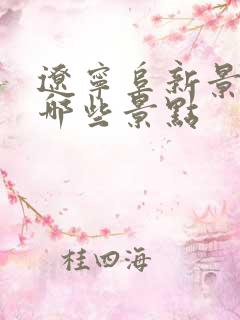 遼寧阜新景
哪些景點
桂四海